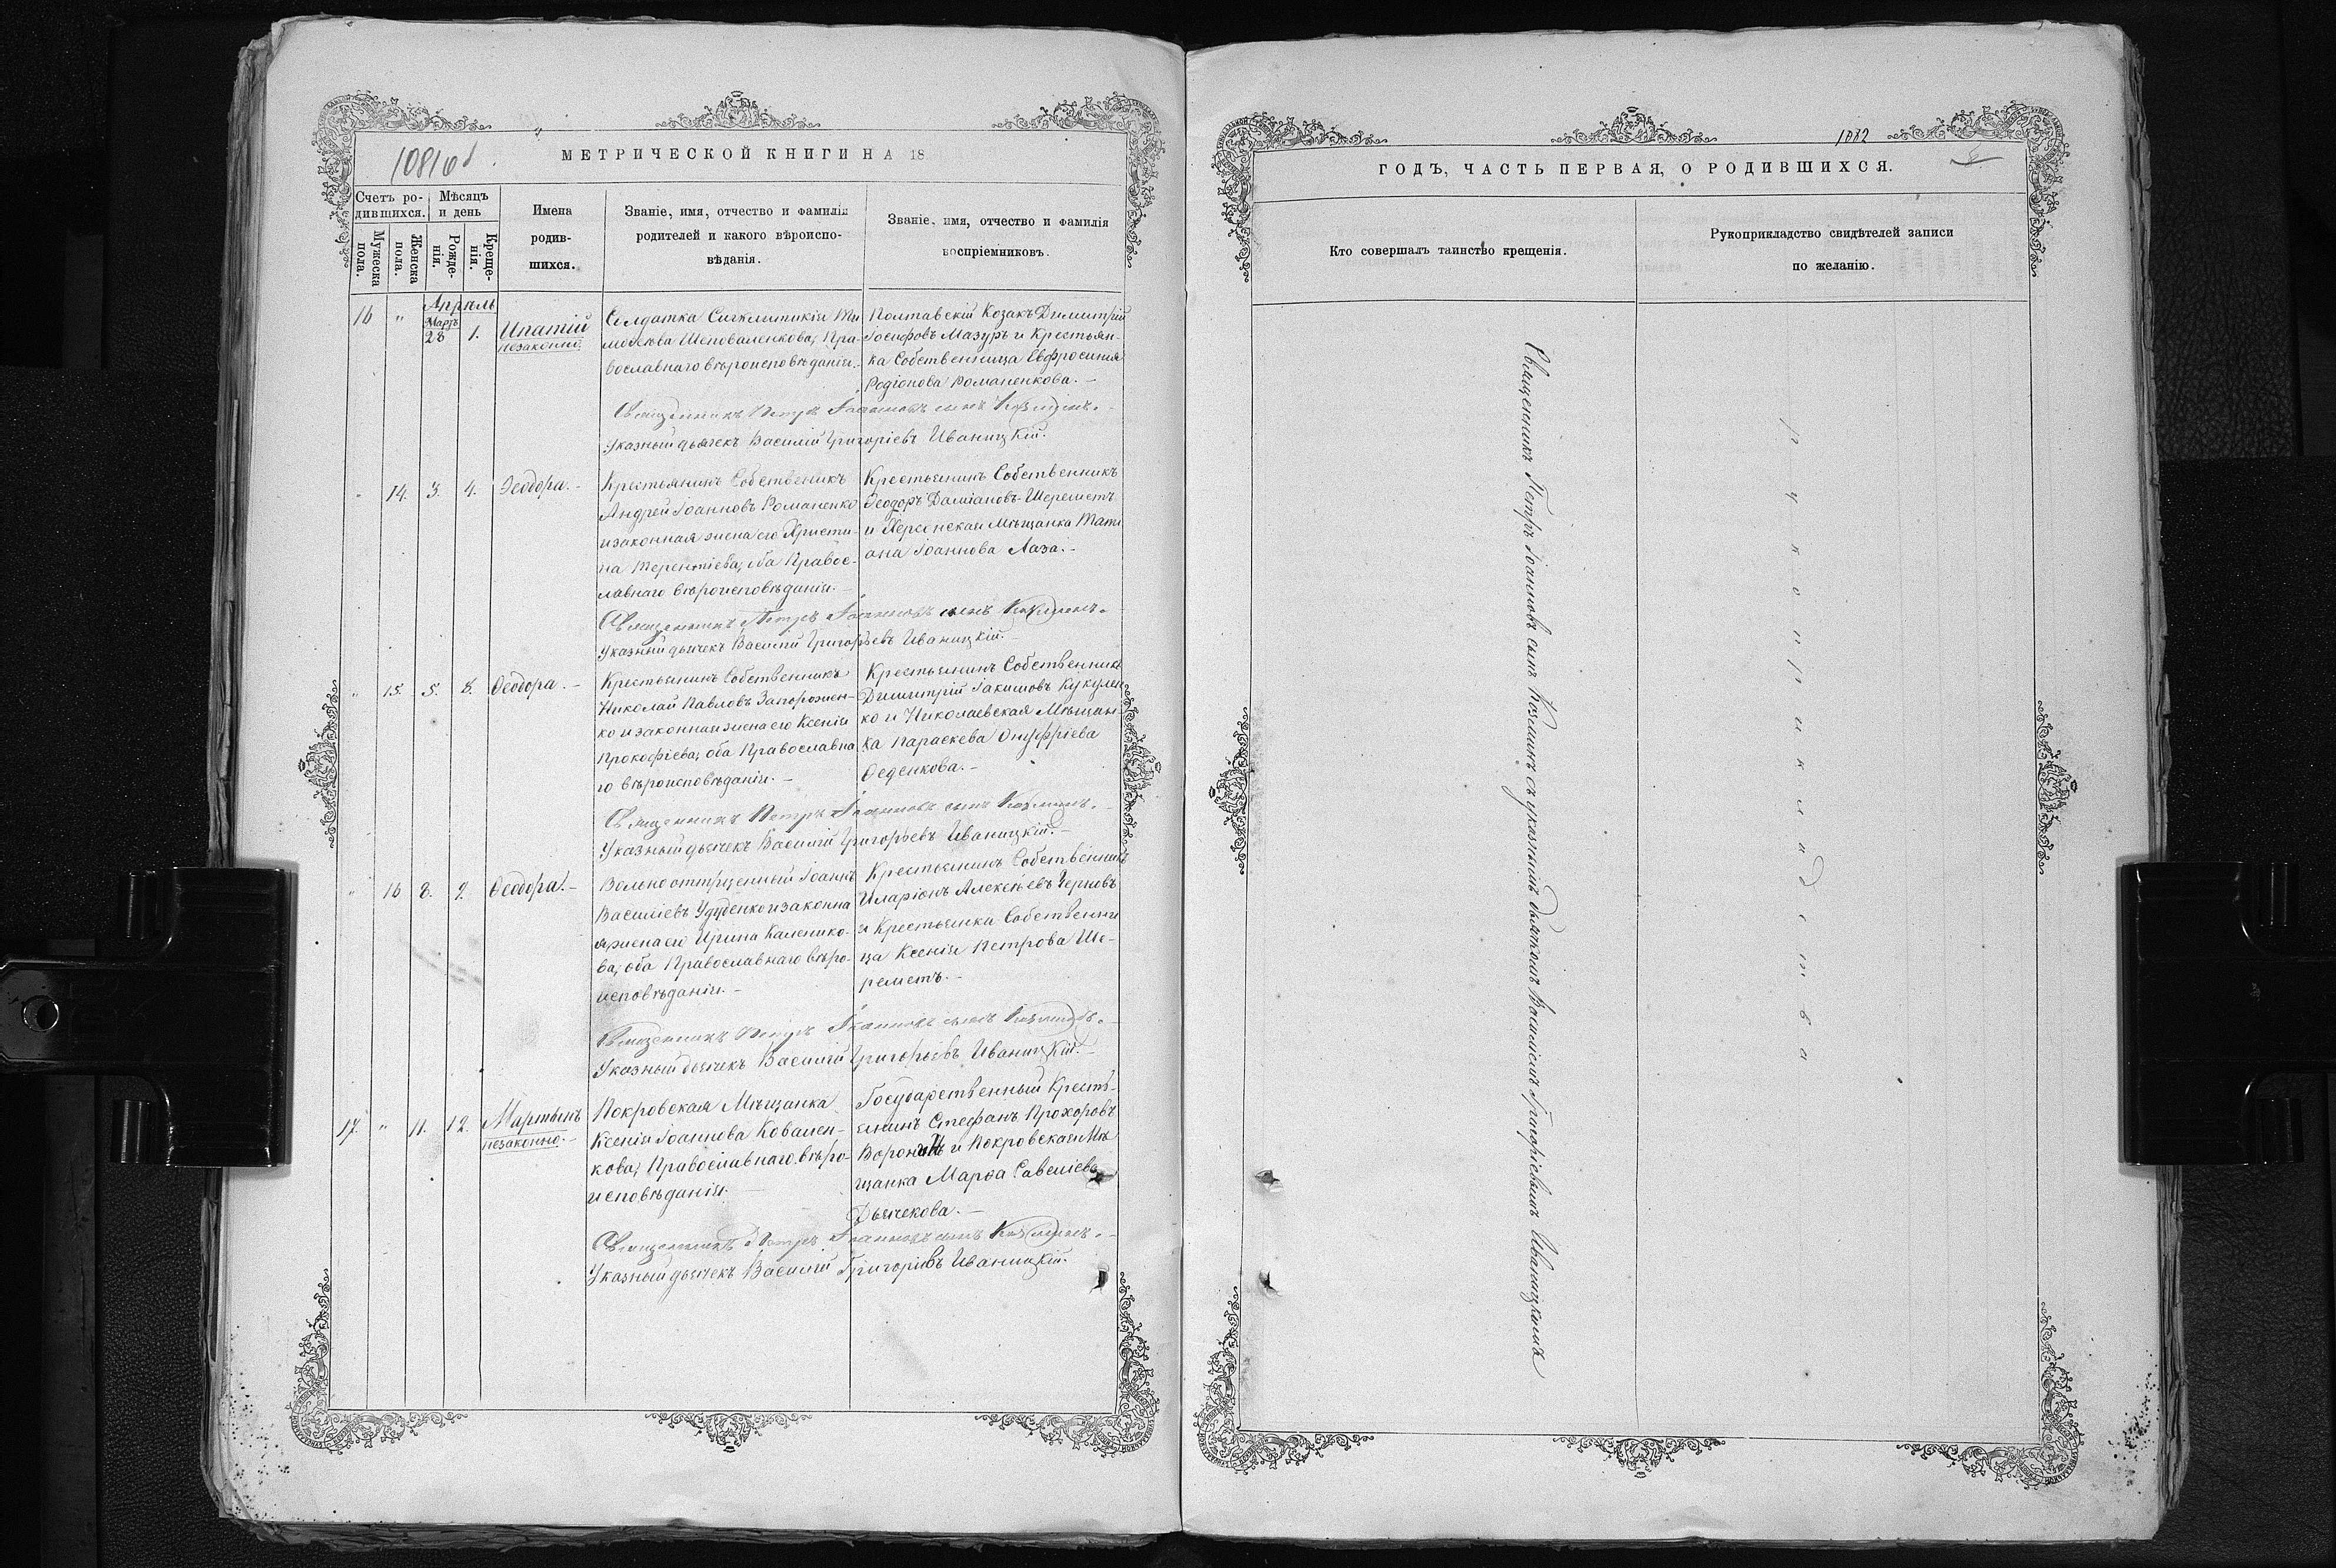 1081об
МЕТРИЧЕСКОЙ КНИГИ НА 18
Счетъ ро-
дившихся.
Мѣсяцъ
и день
Мужеска
пола.
Женска
пола.
Рожде-
нія.
Креще-
нія.
Имена
родив-
шихся.
Званіе, имя, отчество и фамилія
родителей и какого вѣроиспо-
вѣданія.
Званіе, имя, отчество и фамилія
воспріемниковъ.
Апрѣль
16 " Мартъ 28 1. Ипатій
незаконно.
Солдатка Сигклитикія Ти
моѳеева Шеповаленкова, Пра-
вославнаго вѣроисповѣданія.
Полтавскій Козакъ Димитрій
Іосифовъ Мазуръ и Крестьян-
ка Собственница Евфросинія
Родіонова Романенкова. –
Священникъ Петръ Іоанновъ сынъ Козминъ.
Указный дьячекъ Василій Григоріевъ Иваницкій.
" 14. 3. 4. Ѳеодора. –
Крестьянинъ Собственикъ
Андрей Іоанновъ Романенко
и законная жена его Христи-
на Терентіева, оба Правос-
лавнаго вѣроисповѣданія. –
Крестьянинъ Собственникъ
Ѳеодоръ Даміановъ Шереметъ
и Херсонская Мѣщанка Тати
ана Іоаннова Лаза. –
Священникъ Петръ Іоанновъ сынъ Козминъ.
Указный дьячекъ Василій Григорьевъ Иваницкій. –
" 15. 5. 8. Ѳеодора. –
Крестьянинъ Собственникъ
Николай Павловъ Запорожен-
ко и законная жена его Ксенія
Прокофіева, оба Православна
го вѣроисповѣданія. –
Крестьянинъ Собственникъ
Димитрій Іакимовъ Кукулен
ко и Николаевская Мѣщан-
ка Параскева Онуфріева
Ѳеденкова. –
Священникъ Петръ Іоанновъ сынъ Козминъ.
Указный дьячекъ Василій Григорьевъ Иваницкій. –
" 16 8. 9. Ѳеодора. –
Вольноотпущенный Іоаннъ
Василіевъ Удуденко и законна
я жена его Ирина Каленико-
ва, оба Православнаго вѣро-
исповѣданія. –
Крестьянинъ Собственникъ
Иларіонъ Алексѣевъ Черновъ
и Крестьянка Собственни
ца Ксенія Петрова Ше-
реметъ. –
Священникъ Петръ Іоанновъ сынъ Козминъ.
Указный дьячекъ Василій Григорьевъ Иваницкій. –
17. " 11. 12. Мартынъ
незаконно. –
Покровская Мѣщанка
Ксенія Іоаннова Ковален-
кова, Православнаго вѣро-
исповѣданія. –
Государственный Кресть-
янинъ Стефанъ Прохоровъ
и Покровская Мѣ
щанка Марѳа Савеліева
Дьячекова. –
Священникъ Петръ Іоанновъ сынъ Козминъ.
Указный дьячекъ Василій Григоріевъ Иваницкій.
1082
ГОДЪ, ЧАСТЬ ПЕРВАЯ, О РОДИВШИХСЯ.
Кто совершалъ таинство крещенія.
Рукоприкладство свидѣтелей записи
по желанію.
Священникъ Петръ Іоанновъ сынъ Козминъ съ указнымъ дьячкомъ Василіемъ Григоріевымъ Иваницкимъ
рукоприкладства